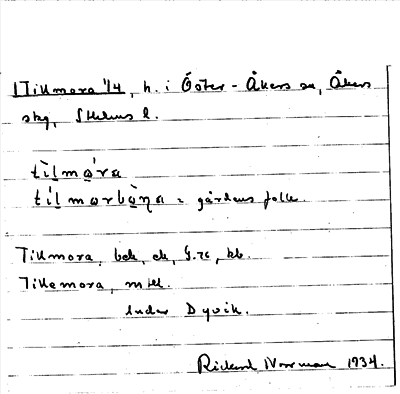 Tillmora 1/4, h. i Öster-Åkers sn, Åkers
skg, Sthlms l.
tìlmọ́ra
tílmọrbọ̀ŋa = gårdens folk.
Tillmora, bek, ek, kb.
Tillamora, mtl.
under Dyvik.
Rickard Norrman 1934.